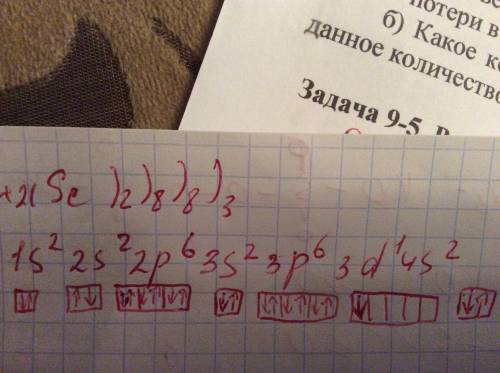 потери в
б) Какое
данное количество
Задача 9-5.
+21 Sc )2)8)8)3
1s² 2s² 2p⁶ 3s² 3p⁶ 3d¹ 4s²